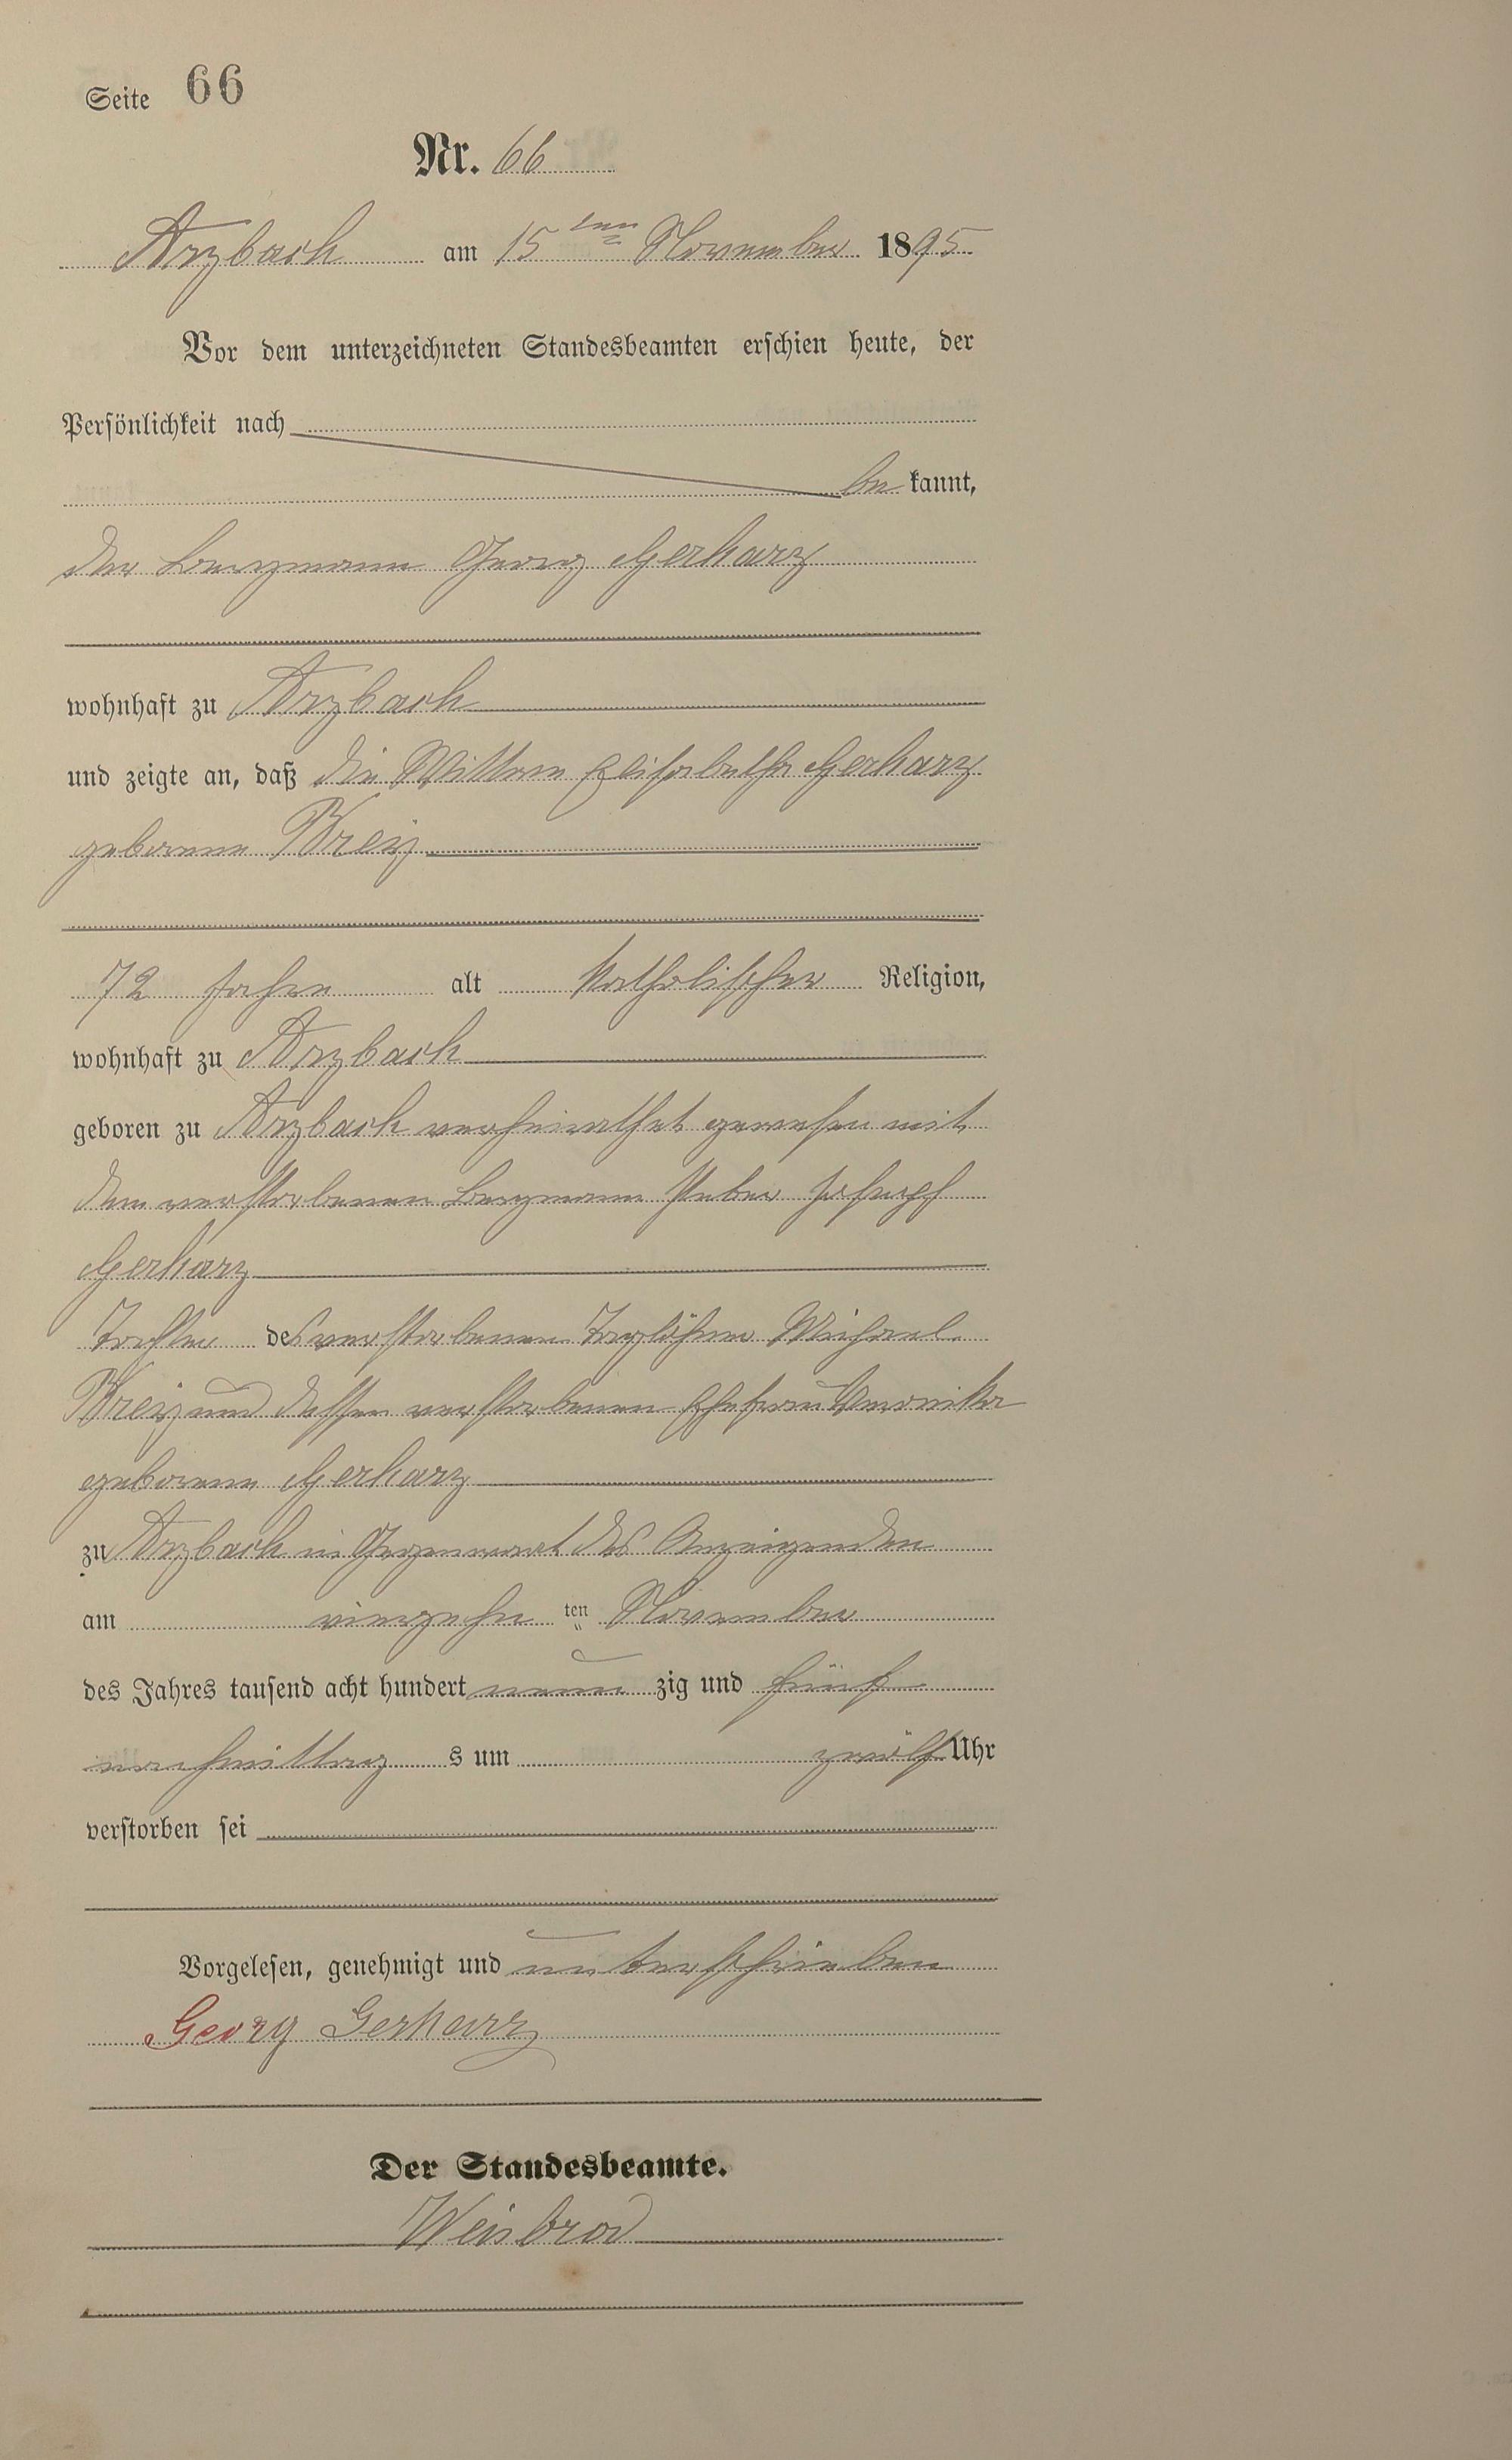 Seite 66
Nr. 66
Arzbach am 15ten November 1895
Vor dem unterzeichneten Standesbeamten erschien heute, der
Persönlichkeit nach
be kannt,
der Bergmann Georg Gerharz
wohnhaft zu Arzbach
und zeigte an, daß die Wittwe Elisabetha Gerharz
geborene Breiz
72 Jahre alt katholischer Religion,
wohnhaft zu Arzbach
geboren zu Arzbach verheirathet gewesen mit
dem verstorbenen Bergmann Peter Joseph
Gerharz
Tochter des verstorbenen Taglöhner Michael
Breiz und dessen verstorbenen Ehefrau Veronika
geborene Gerharz
zu Arzbach in Gegenwart des Anzeigenden
am vierzehn ten November
des Jahres tausend acht hundert neun zig und fünf
nachmittag s um zwölf Uhr
verstorben sei
Vorgelesen, genehmigt und unterschrieben
Georg Gerharz
Der Standesbeamte.
Weisbrod